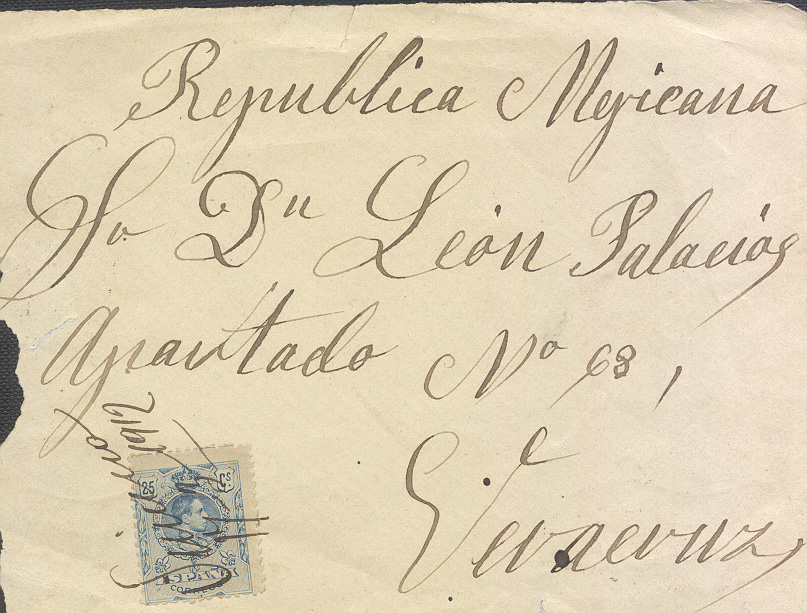 Republica Mejicana
Sr. Dn León Palacios
Apartado Nº 63,
Veracruz,
25 Cs
1912
CORREOS